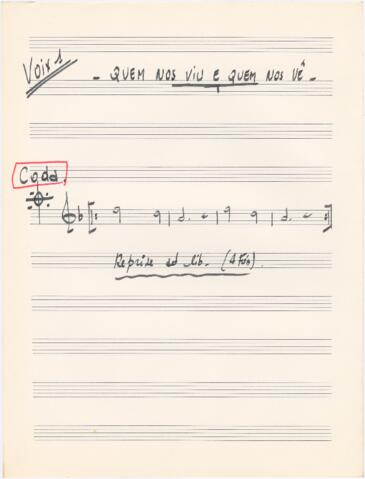 Voix 1
- QUEM NOS VIU E QUEM NOS VÊ -
Coda.
Reprise ad lib. (4 Fois).